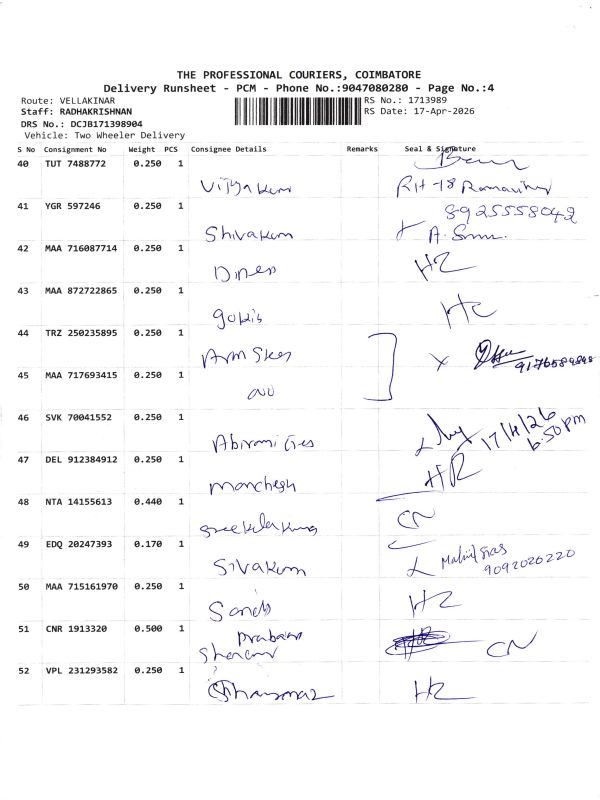 THE PROFESSIONAL COURIERS, COIMBATORE
Delivery Runsheet - PCM - Phone No.:9047080280 - Page No.:4
Route: VELLAKINAR RS No.: 1713989
Staff: RADHAKRISHNAN RS Date: 17-Apr-2026
DRS No.: DCJB171398904
Vehicle: Two Wheeler Delivery
S No Consignment No Weight PCS Consignee Details Remarks Seal & Signature
40 TUT 7488772 0.250 1
Vijyakum RH-18
41 YGR 597246 0.250 1 8925558042
Shivakum
42 MAA 716087714 0.250 1 HZ
Dines
43 MAA 872722865 0.250 1
gokis
44 TRZ 250235895 0.250 1
45 MAA 717693415 0.250 1
46 SVK 70041552 0.250 1 17/4/26
Abirami 6:50 PM
47 DEL 912384912 0.250 1 HR
48 NTA 14155613 0.440 1 CN
49 EDQ 20247393 0.170 1
Sivakum 9092020220
50 MAA 715161970 0.250 1 HZ
51 CNR 1913320 0.500 1 CN
52 VPL 231293582 0.250 1 HZ